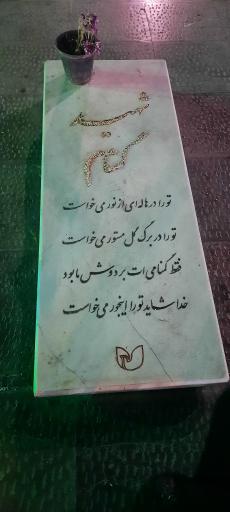 شهید
گمنام
تو را در هاله‌ای از نور می‌خواست
تو را در برگ گل مستور می‌خواست
فقط گمنامی‌ات بر دوش ما بود
خدا شاید تو را اینجور می‌خواست